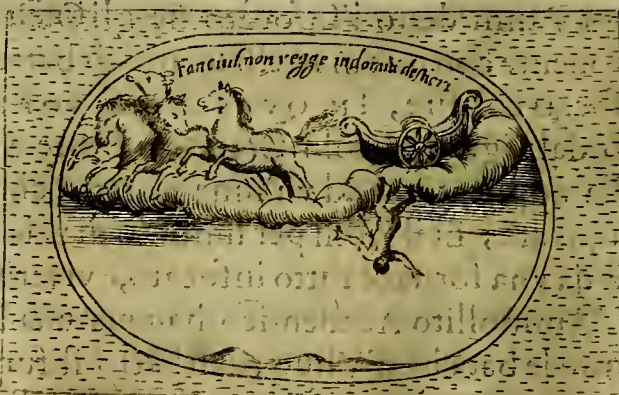 Fanciul non regge indomiti destrieri